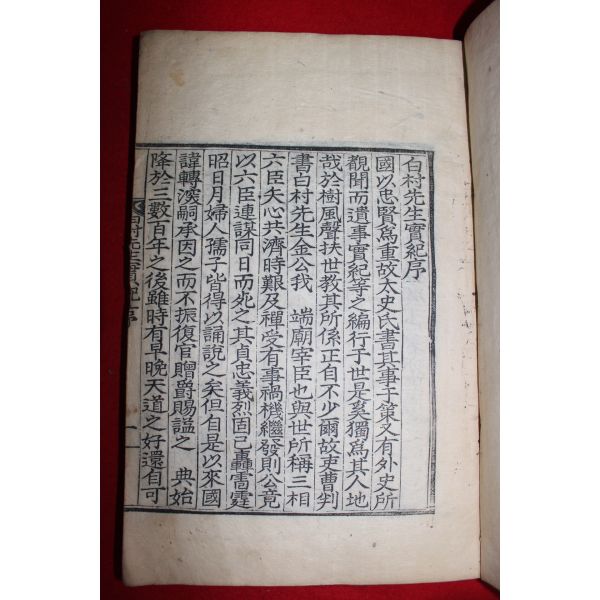 白村先生實紀序
國以忠賢爲重故太史氏書其事于策又有外史所
覩聞而遺事實紀等之編行于世是奚獨爲其人地
哉於樹風聲扶世敎其所係正自不少爾故吏曹判
書白村先生金公我 端廟宰臣也與世所稱三相
六臣矢心共濟時艱及禪受有事禍機繼發則公竟
以六臣連謀同日而死之其貞忠義烈固已轟雷霆
昭日月婦人孺子皆得以誦說之矣但自是以來國
諱轉深嗣承因之而不振復官贈爵賜謚之 典始
降於三數百年之後雖時有早晩天道之好還自可
白村先生實紀 序 一